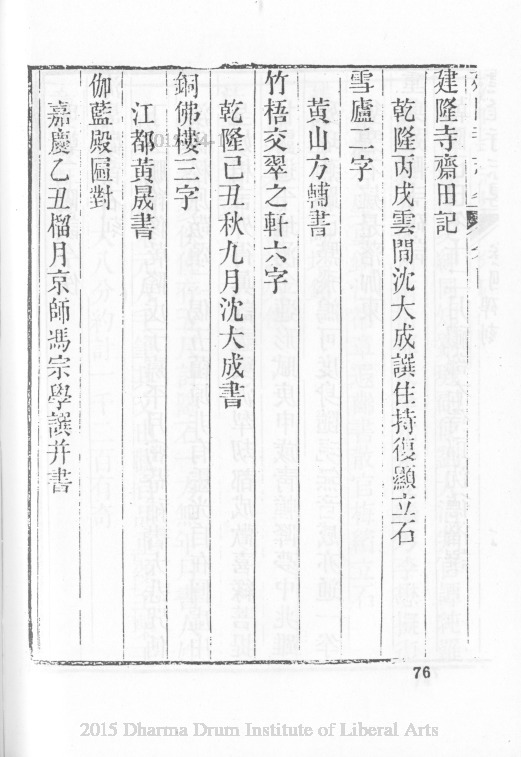 建隆寺齋田記
乾隆丙戌雲間沈大成譔住持復顯立石
雪廬二字
黃山方輔書
竹梧交翠之軒六字
乾隆己丑秋九月沈大成書
銅佛樓三字
江都黃晟書
伽藍殿匾對
嘉慶乙丑榴月京師馮宗學譔并書
76
2015 Dharma Drum Institute of Liberal Arts